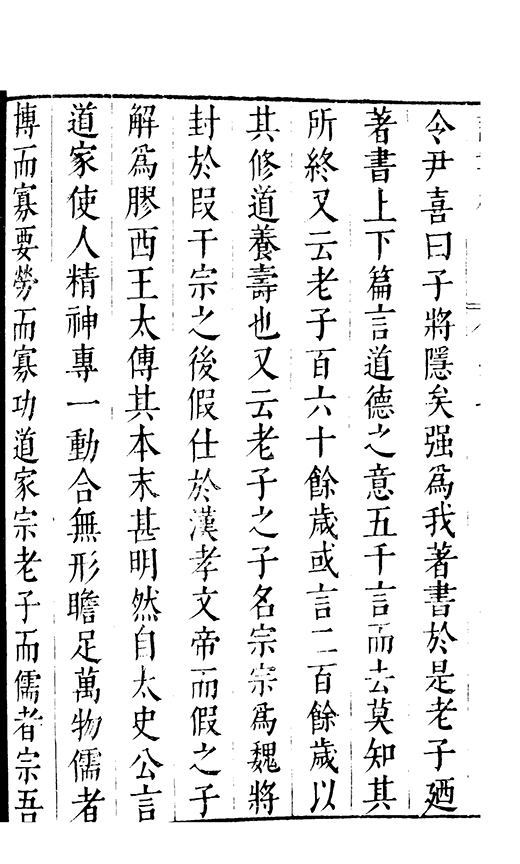 令尹喜曰子將隱矣强爲我著書於是老子廼
著書上下篇言道德之意五千言而去莫知其
所終又云老子百六十餘歲或言二百餘歲以
其修道養壽也又云老子之子名宗宗爲魏將
封於叚干宗之後假仕於漢孝文帝而假之子
解爲膠西王太傅其本末甚明然自太史公言
道家使人精神專一動合無形贍足萬物儒者
博而寡要勞而寡功道家宗老子而儒者宗吾